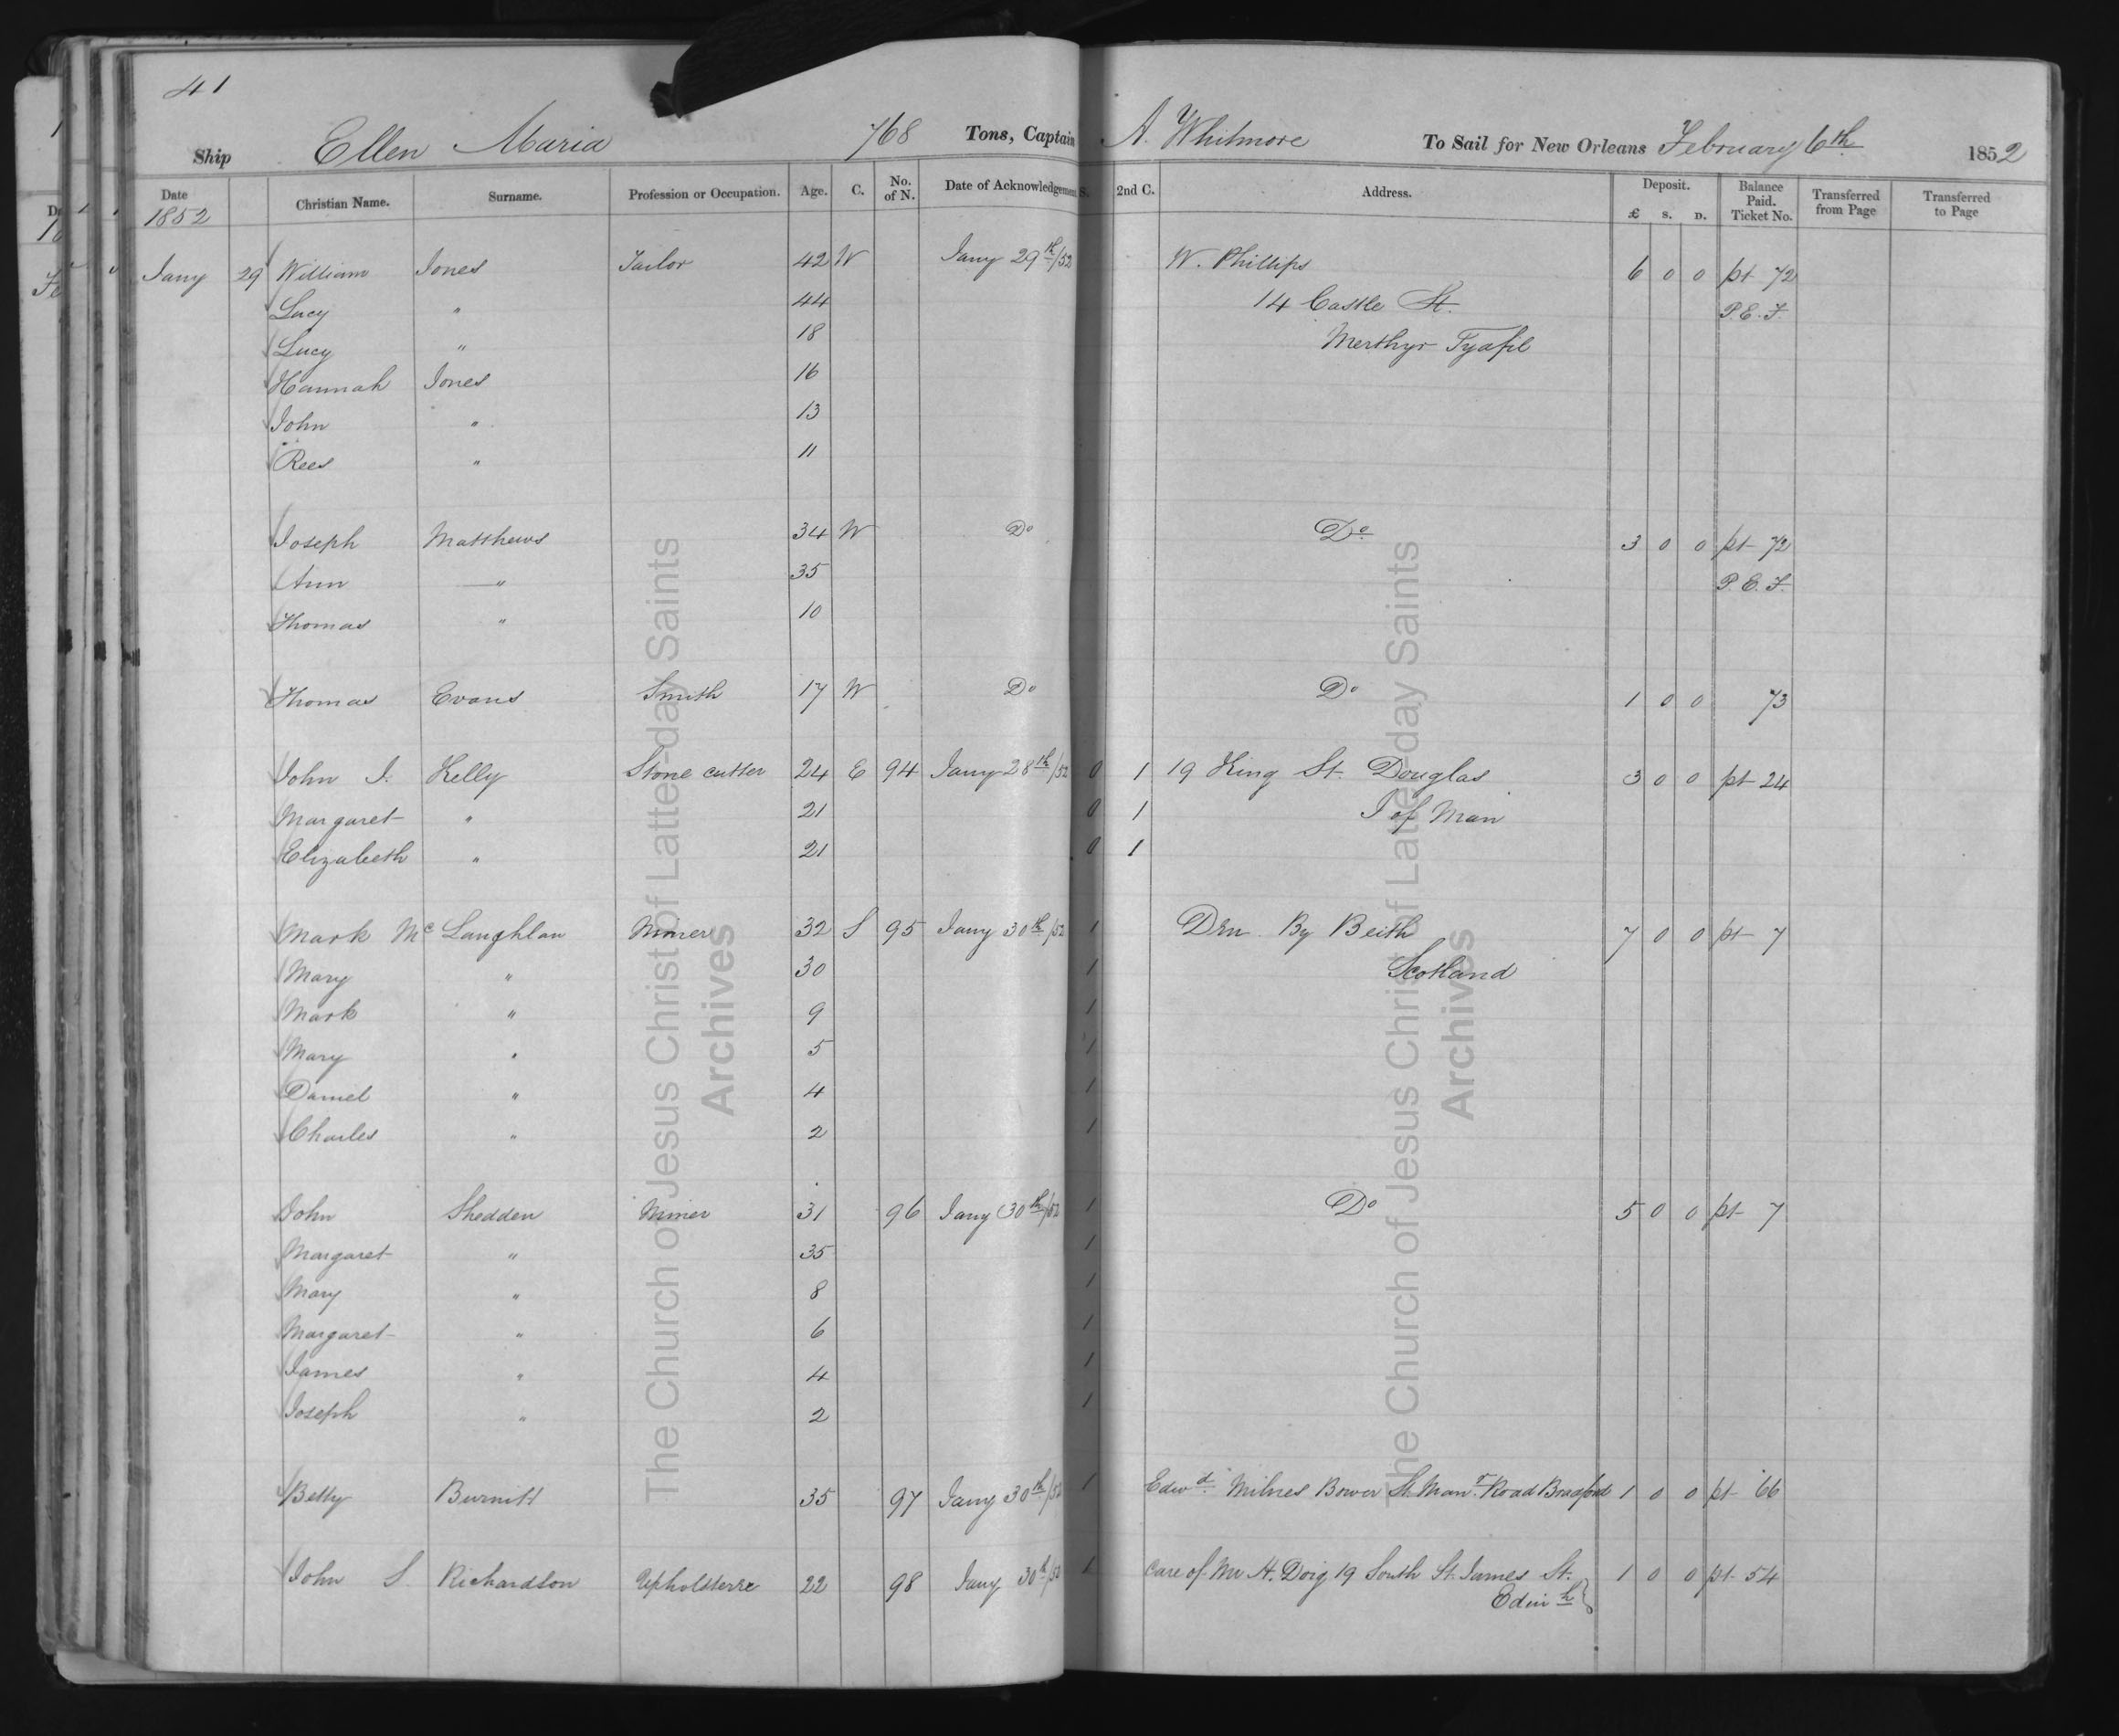 41
Ship Ellen Maria 768 Tons, Captain A. Whitmore To Sail for New Orleans February 6th 1852
Date 1852 Christian Name. Surname. Profession or Occupation. Age. C. No. of N. Date of Acknowledgement S. 2nd C. Address. Deposit. £ S. D. Balance Paid. Ticket No. Transferred from Page Transferred to Page
Jany 29 William Jones Tailor 42 W Jany 29th/52 W. Phillips 6 0 0 pt 72
Lucy " 44 14 Castle St. P.E.F.
Lucy " 18 Merthyr Tydfil
Hannah Jones 16
John " 13
Rees " 11
Joseph Matthews 34 W Do Do 3 0 0 pt 72
Ann " 35 P.E.F.
Thomas " 10
Thomas Evans Smith 17 W Do Do 1 0 0 73
John J. Kelly Stone cutter 24 E 94 Jany 28th/52 0 1 19 King St. Douglas 3 0 0 pt 24
Margaret " 21 0 1 I of Man
Elizabeth " 21 0 1
Mark Mc Laughlan Miner 32 S 95 Jany 30th/52 1 By Beith 7 0 0 pt 7
Mary " 30 1 Scotland
Mark " 9 1
Mary " 5 1
Daniel " 4 1
Charles " 2 1
John Shedden Miner 31 96 Jany 30th/52 1 Do 5 0 0 pt 7
Margaret " 35 1
Mary " 8 1
Margaret " 6 1
James " 4 1
Joseph " 2 1
Betty Burnitt 35 97 Jany 30th/52 1 Edwd. Milnes Bower St. Manr. Road Bradford 1 0 0 pt 66
John S Richardson Upholsterre 22 98 Jany 30th/52 1 Care of Mr H. Doig 19 South St. James St. 1 0 0 pt 54
Edin h
The Church of Jesus Christ of Latter-day Saints
Archives
The Church of Jesus Christ of Latter-day Saints
Archives